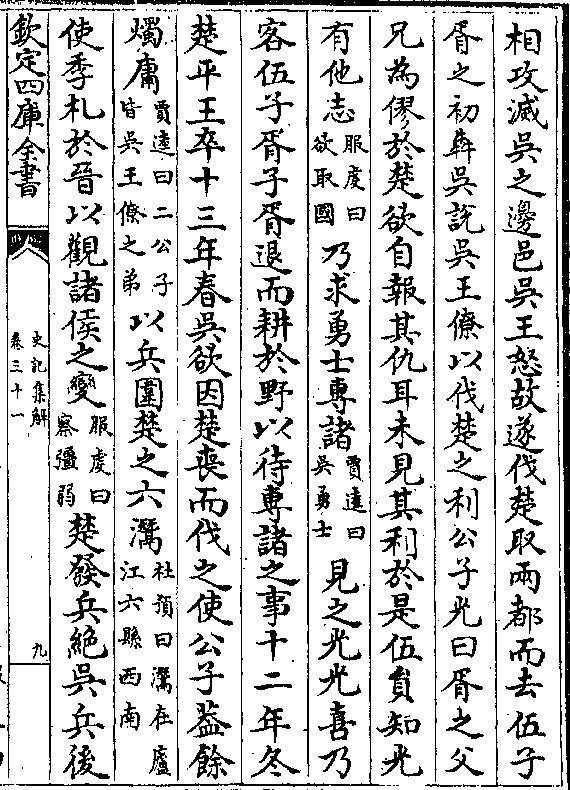 相攻滅吳之邊邑吳王怒故遂伐楚取兩都而去伍子
胥之初奔吳說吳王僚以伐楚之利公子光曰胥之父
兄為僇於楚欲自報其仇耳未見其利於是伍負知光
有他志服虔曰欲取國乃求勇士專諸賈逵曰吳勇士見之光光喜乃
客伍子胥子胥退而耕於野以待專諸之事十二年冬
楚平王卒十三年春吳欲因楚喪而伐之使公子蓋餘
燭庸賈逵曰二公子皆吳王僚之弟以兵圍楚之六灊杜預曰灊在廬江六縣西南
使季札於晉以觀諸侯之變服虔曰察彊弱楚發兵絕吳兵後
欽定四庫全書
史記集解
卷三十一
九